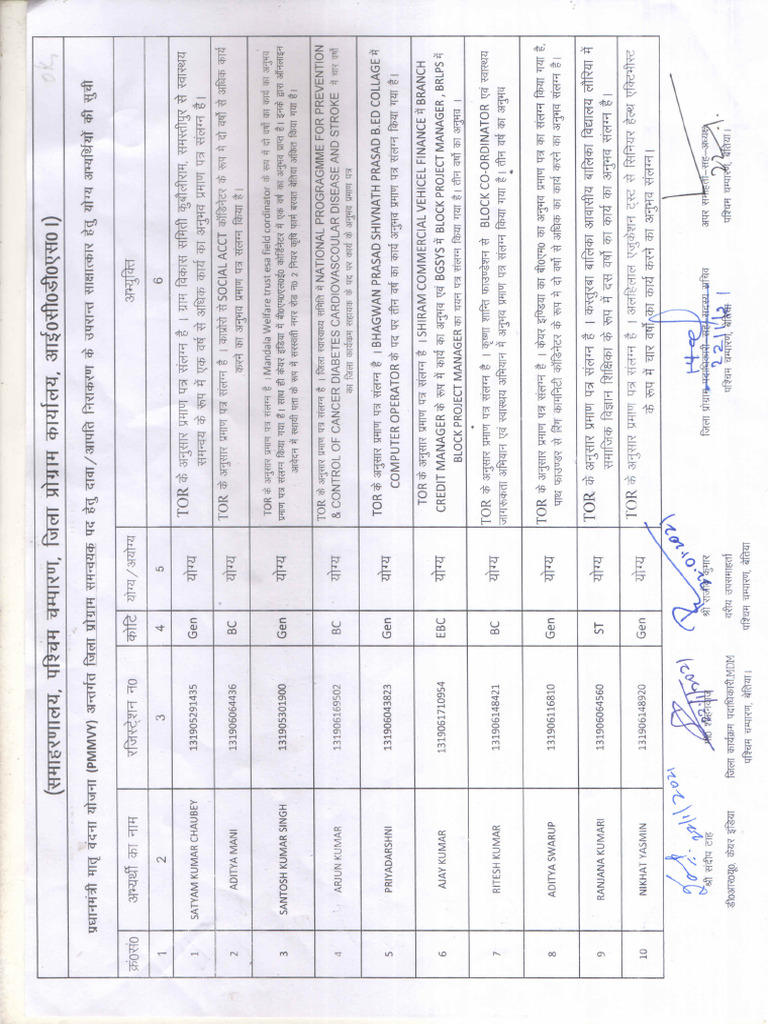 (समाहरणालय, पश्चिम चम्पारण, जिला प्रोग्राम कार्यालय, आई0सी0डी0एस0।)
प्रधानमंत्री मातृ वंदना योजना (PMMVY) अन्तर्गत जिला प्रोग्राम समन्वयक पद हेतु दावा/आपति निराकरण के उपरान्त साक्षात्कार हेतु योग्य अभ्यर्थियों की सुची
क्रं0सं0 अभ्यर्थी का नाम रजिस्ट्रेशन न0 कोटि योग्य/अयोग्य अभ्युक्ति
1 2 3 4 5 6
1 SATYAM KUMAR CHAUBEY 131905291435 Gen योग्य TOR के अनुसार प्रमाण पत्र संलग्न है । ग्राम विकास समिति कुबौलीराम, समस्तीपुर से स्वास्थय
समन्वय के रूप में एक वर्ष से अधिक कार्य का अनुभव प्रमाण पत्र संलग्न है।
2 ADITYA MANI 131906064436 BC योग्य TOR के अनुसार प्रमाण पत्र संलग्न है । काप्रोरो से SOCIAL ACCT कोंडिनेटर के रूप में दो वर्षो से अधिक कार्य
करने का अनुभव प्रमाण पत्र संलग्न किया है।
3 SANTOSH KUMAR SINGH 131905301900 Gen योग्य TOR के अनुसार प्रमाण पत्र संलग्न है । Mandala Welfare trust esa field cordinator के रूप में दो वर्षो का कार्य का अनुभव
प्रमाण पत्र संलग्न किया गया है। साथ ही केयर इंडिया में बी0एम0एल0ई0 कोर्डिनेटर में एक वर्ष का अनुभव प्राप्त है। इनके द्वारा ऑनलाइन
आवेदन में स्थायी पता के रूप में सरस्वती नगर रोड न0 2 नियर कृषि फार्म बरवत बेतिया अंकित किया गया है।
4 ARJUN KUMAR 131906169502 BC योग्य TOR के अनुसार प्रमाण पत्र संलग्न है । जिला स्वास्थ्य समिति में NATIONAL PROGRAMME FOR PREVENTION
& CONTROL OF CANCER DIABETES CARDIOVASCOULAR DISEASE AND STROKE में चार वर्षो
का जिला कार्यक्रम सहायक के पद पर कार्य के अनुभव प्रमाण पत्र
5 PRIYADARSHNI 131906043823 Gen योग्य TOR के अनुसार प्रमाण पत्र संलग्न है । BHAGWAN PRASAD SHIVNATH PRASAD B.ED COLLAGE में
COMPUTER OPERATOR के पद पर तीन वर्ष का कार्य अनुभव प्रमाण पत्र संलग्न किया गया है।
6 AJAY KUMAR 1319061710954 EBC योग्य TOR के अनुसार प्रमाण पत्र संलग्न है । SHIRAM COMMERCIAL VEHICEL FINANCE में BRANCH
CREDIT MANAGER के रूप में कार्य का अनुभव एवं BGSYS में BLOCK PROJECT MANAGER , BRLPS में
BLOCK PROJECT MANAGER का चयन पत्र संलग्न किया गया है। तीन वर्षो का अनुभव ।
7 RITESH KUMAR 131906148421 BC योग्य TOR के अनुसार प्रमाण पत्र संलग्न है । कष्णा शान्ति फाउण्डेशन से BLOCK CO-ORDINATOR एवं स्वास्थय
जागरूकता अभियान एवं स्वास्थय अभियान में अनुभव प्रमाण पत्र संलग्न किया गया है। तीन वर्ष का अनुभव
8 ADITYA SWARUP 131906116810 Gen योग्य TOR के अनुसार प्रमाण पत्र संलग्न है । केयर इण्डिया का बी0एम0 का अनुभव प्रमाण पत्र का संलग्न किया गया है,
पाथ फाउण्डर से रिंग कामनिटी कोंडिनेटर के रूप में दो वर्षो से अधिक का कार्य करने का अनुभव संलग्न है।
9 RANJANA KUMARI 131906064560 ST योग्य TOR के अनुसार प्रमाण पत्र संलग्न है । कस्तुरबा बालिका आवासीय बालिका विद्यालय लौरिया में
समाजिक विज्ञान शिक्षिका के रूप में दस वर्षो का कार्य का अनुभव संलग्न है।
10 NIKHAT YASMIN 131906148920 Gen योग्य TOR के अनुसार प्रमाण पत्र संलग्न है । अलहिलाल एजुकेशन ट्रस्ट से सिनियर हेल्थ एक्टिभीस्ट
के रूप में चार वर्षो का कार्य करने का अनुभव संलग्न।
20/1/2021
श्री संदीप टाह
डी0आर0यू0, केयर इंडिया
जिला कार्यक्रम पदाधिकारी,MDM
पश्चिम चम्पारण, बेतिया।
श्री राजीव कुमार
वरीय उपसमाहर्ता
पश्चिम चम्पारण, बेतिया
जिला प्रोग्राम पदाधिकारी-सह-सदस्य सचिव
पश्चिम चम्पारण, बेतिया
अपर समाहर्ता-सह-अध्यक्ष
पश्चिम चम्पारण, बेतिया।